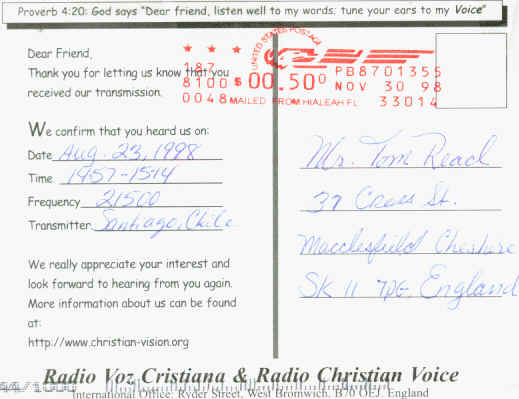 Proverb 4:20: God says "Dear friend, listen well to my words; tune your ears to my Voice"
Dear Friend,
Thank you for letting us know that you
received our transmission.
We confirm that you heard us on:
Date Aug. 23, 1998
Time 1457-1514
Frequency 21500
Transmitter Santiago, Chile
We really appreciate your interest and
look forward to hearing from you again.
More information about us can be found
at:
http://www.christian-vision.org
UNITED STATES POSTAGE
187
8100 $00.500 PB8701355
NOV 30 98
0048 MAILED FROM HIALEAH FL 33014
Mr. Tom Read
37 Cross St.
Macclesfield Cheshire
SK 11 7PG, England
Radio Voz Cristiana & Radio Christian Voice
International Office: Ryder Street, West Bromwich, B70 OEJ, England